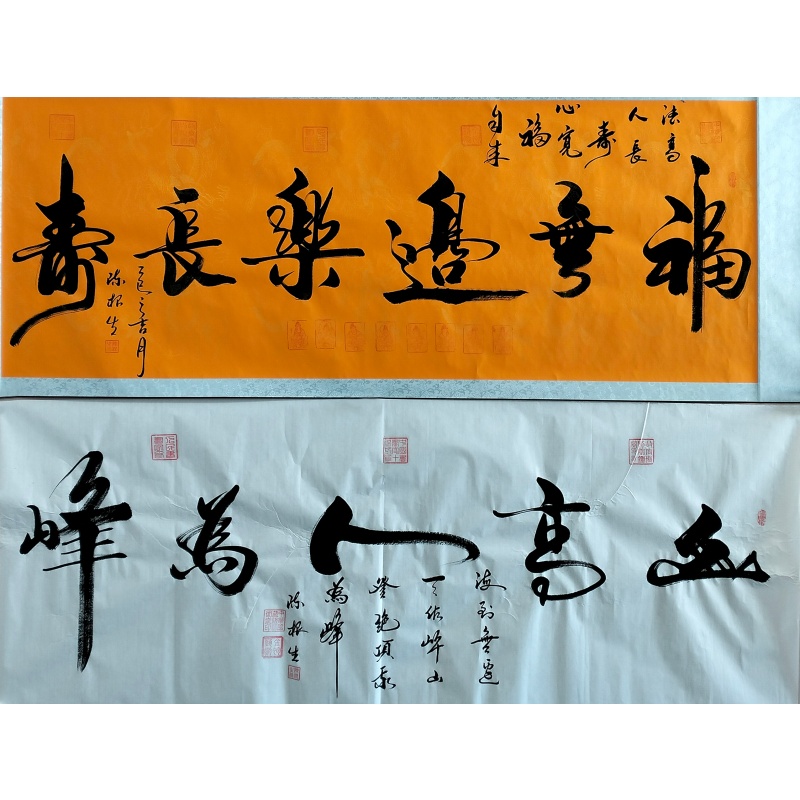 福無邊樂長壽
德高
人長
壽
心寬
福
自来
乙巳之吉月
陈根生
山高人為峰
海到無邊
天作岸山
登絶頂我
為峰
陈根生